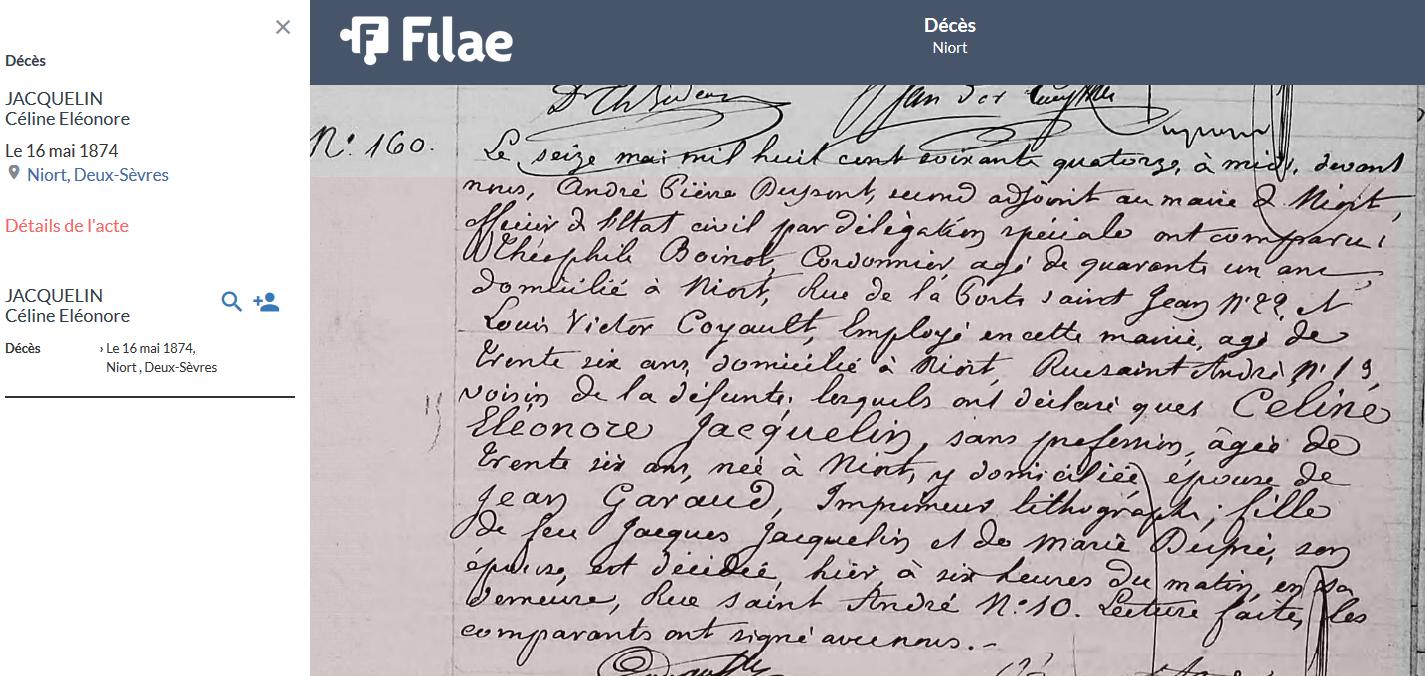 Décès
JACQUELIN
Céline Eléonore
Le 16 mai 1874
Niort, Deux-Sèvres
Détails de l'acte
JACQUELIN
Céline Eléonore
Décès
› Le 16 mai 1874,
Niort , Deux-Sèvres
Filae
Décès
Niort
N° 160.
Le seize mai mil huit cent soixante quatorze, à midi, devant
nous, André Pierre Dupont, second adjoint au maire de Niort,
officier de l'Etat civil par délégation spéciale ont comparu :
Théophile Boinot, Cordonnier, agé de quarante un ans
domicilié à Niort, Rue de la Porte saint Jean N° 22, et
Louis Victor Coyault, Employé en cette mairie, agé de
trente six ans, domicilié à Niort, Rue saint André N° 13,
voisins de la défunte; lesquels ont déclaré que Celine
Eléonore Jacquelin, sans profession, âgée de
trente six ans, née à Niort, y domiciliée, épouse de
Jean Garaud, Imprimeur lithographe; fille
de feu Jacques Jacquelin et de Marie Dupré, son
épouse, est décédée, hier, à six heures du matin, en sa
demeure, Rue saint André N° 10. Lecture faite, les
comparants ont signé avec nous. -